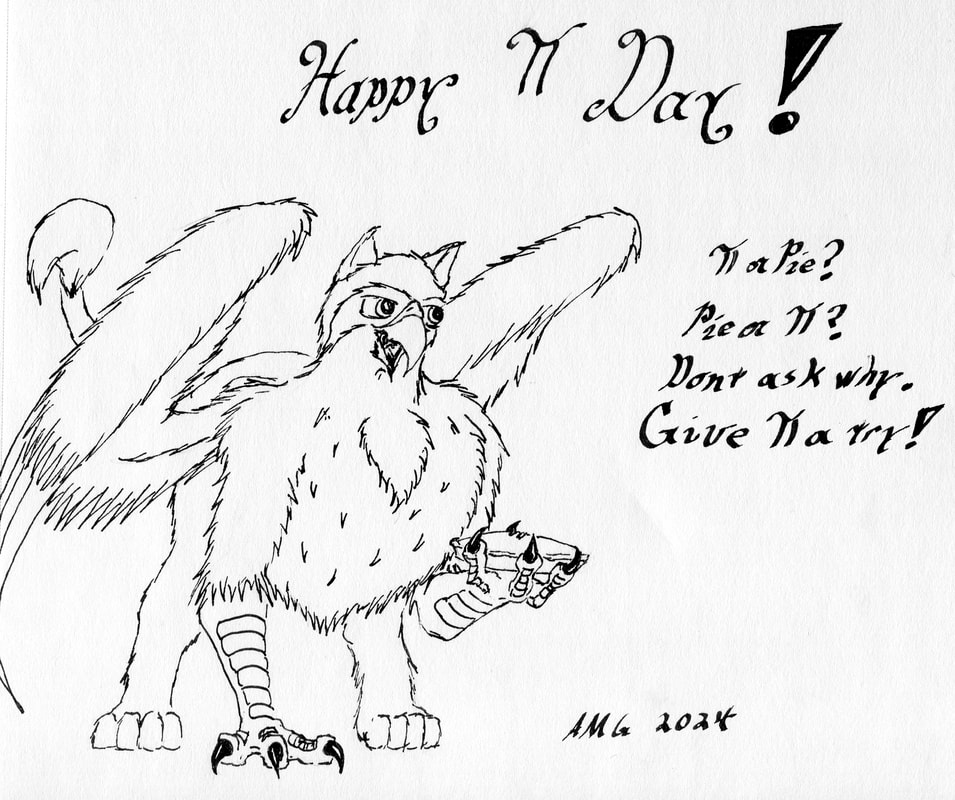 Happy π Day!
π a Pie?
Pie a π?
Dont ask why.
Give π a try!
AMG 2024